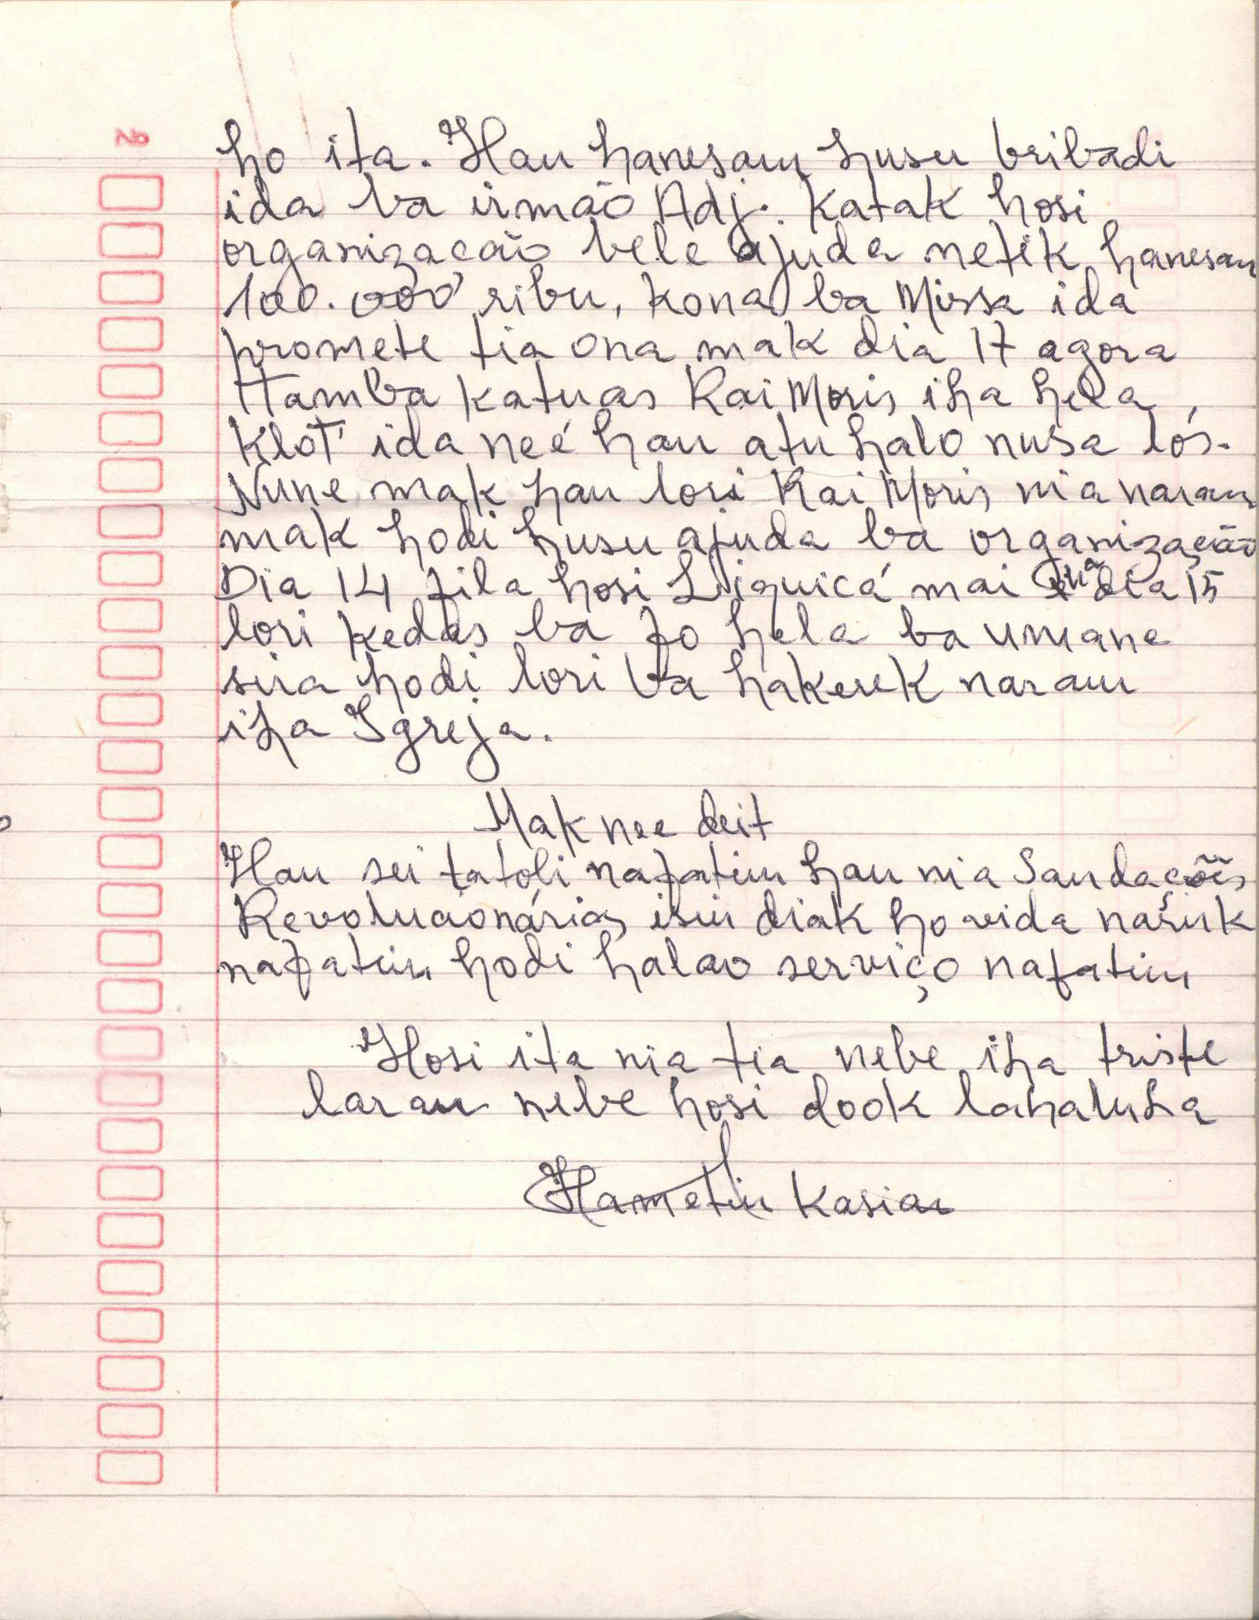 ho ita. Hau hanesam husu bribadi
ida ba irmão Adj. katak hosi
organizacão bele ajuda netik hanesan
100.000 ribu, kona ba Missa ida
promete tia ona mak dia 17 agora
Hamba katuas Kai Moris iha hela,
klot ida neé hau atu halo nusa lós.
Nune mak hau lori Kai Moris nia naran
mak hodi husu ajuda ba organização
Dia 14 fila hosi Liquicá mai dia 15
lori kedas ba fo hela ba umane
sira hodi lori ba hakerek naran
iha Igreja.
Mak nee deit
Hau sei tatoli nafatin hau nia Saudações
Revolucionárias isin diak ho vida naruk
nafatin hodi halao serviço nafatin
Hosi ita nia tia nebe iha triste
laran nebe hosi dook lahaluha
Hametin Kasian